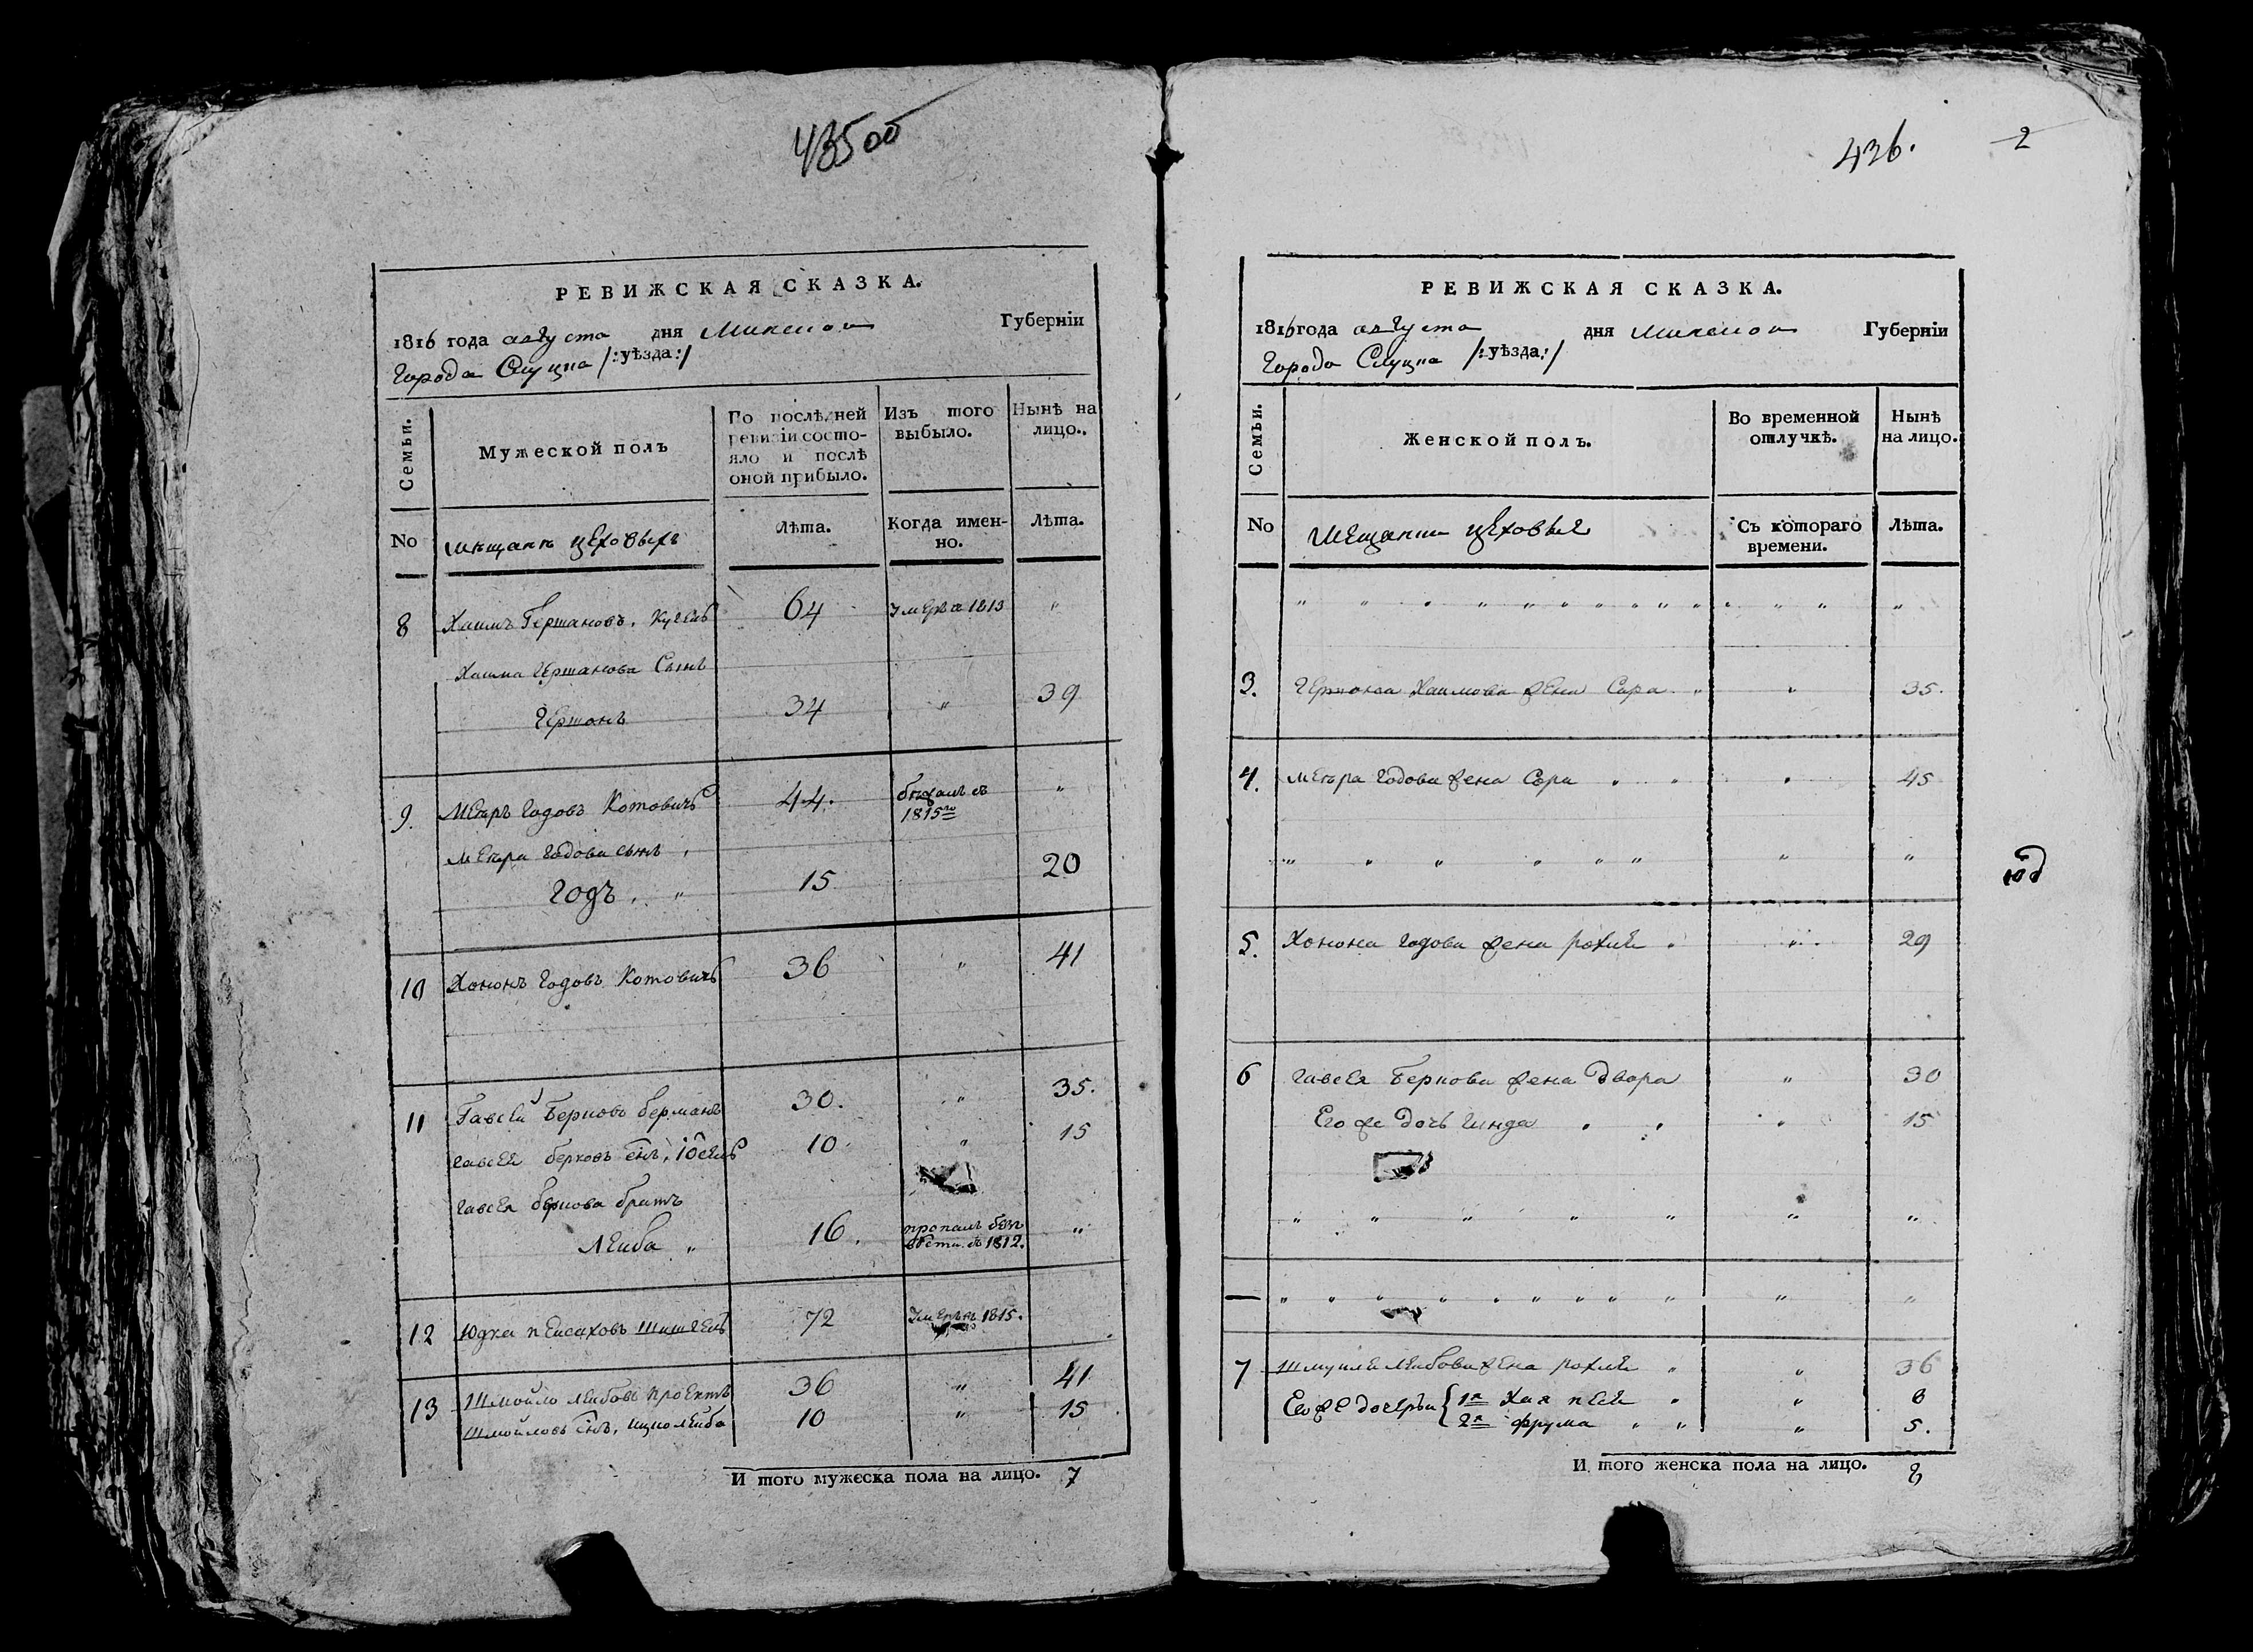 435 об
РЕВИЖСКАЯ СКАЗКА.
1816 года августа дня Минской Губернїи
Города Слуцка /:уѣзда:/
Семьи.
Мужеской полъ
По послѣдней ревизїи состо-
яло и послѣ
оной прибыло.
Изъ того
выбыло.
Нынѣ на
лицо.
No
мѣщанъ цеховыхъ
Лѣта.
Когда имен-
но.
Лѣта.
8 Хаимъ Гершановъ. 64 умеръ 1813 "
Хаима Гершанова Сынъ
Гершонъ 34 " 39
9. Мееръ Годовъ Котовичь 44. 1815го "
Меера Годова сынъ
Годъ. " 15 20
10 Хононъ Годовъ Котовичь 36 " 41
11 Гавсей Берковъ Берманъ 30. " 35.
Гавсея Берковъ сынъ. Іосель 10 " 15
Гавсея Беркова братъ
Леиба " 16. пропалъ безъ
вѣсти въ 1812. "
12 Юдка Пеисаховъ 72 умеръ 1815.
13 Шмоило Леибовъ 36 " 41
Шмоиловъ сынъ. Ицко Леиба 10 " 15
И того мужеска пола на лицо. 7
436. 2
РЕВИЖСКАЯ СКАЗКА.
1816 года августа дня Минской Губернїи
Города Слуцка /:уѣзда:/
Семьи.
Женской полъ.
Во временной
отлучкѣ.
Нынѣ
на лицо.
No
Мещанки цеховые
Съ котораго
времени.
Лѣта.
3. Гершона Хаимова жена Сора " " 35.
4. Меера Годова жена Сора " " 45
5. Хонона Годова жена Рохля " " 29
6 Гавсея Беркова жена Двора " 30
Его же дочь Гинда " " 15
7 Шмуиле Леибова жена Рохля " " 36
Его же дочери { 1я Хая Песя " " 8
2я Фрума " " 5.
И того женска пола на лицо. 8